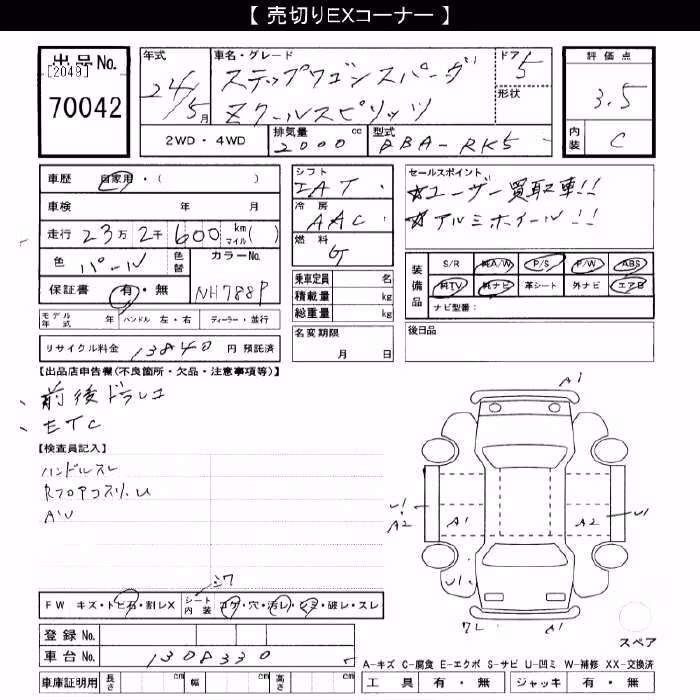 【 売切りEXコーナー 】
出品No.
[2049]
70042
年式
24/5月
車名・グレード
ステップワゴンスパーダ
Zクールスピリッツ
ドア
5
形状
評価点
3.5
内装
C
2WD・4WD
排気量
2000cc
型式
DBA-RK5
車歴 自家用・( )
車検 年 月
走行 23万2千600 km マイル( )
色 パール 色替 カラーNo.
NH788P
保証書 有・無
モデル年式 年 ハンドル 左・右 ディーラー・並行
リサイクル料金 13840 円 預託済
シフト
IAT
冷房
AAC
燃料
G
乗車定員 名
積載量 kg
総重量 kg
名変期限
月 日
セールスポイント
☆ユーザー買取車!!
☆アルミホイール!!
装備品
S/R 純A/W P/S P/W ABS
純TV 純ナビ 革シート 外ナビ エアB
ナビ型番:
後日品
【出品店申告欄(不良箇所・欠品・注意事項等)】
、前後ドラレコ
、ETC
【検査員記入】
ハンドルスレ
RフロアコスリU
AU
シワ
FW キズ・トビ石・割レX シート内装 コゲ・穴・汚レ・シミ・破レ・スレ
登録No.
車台No. 1308330
車庫証明用 長さ cm 幅 cm 高さ cm
A1
U1
A2
A1
A2
U1
U1
ワレ
A1
スペア
A-キズ C-腐食 E-エクボ S-サビ U-凹ミ W-補修 XX-交換済
工具 有・無 ジャッキ 有・無